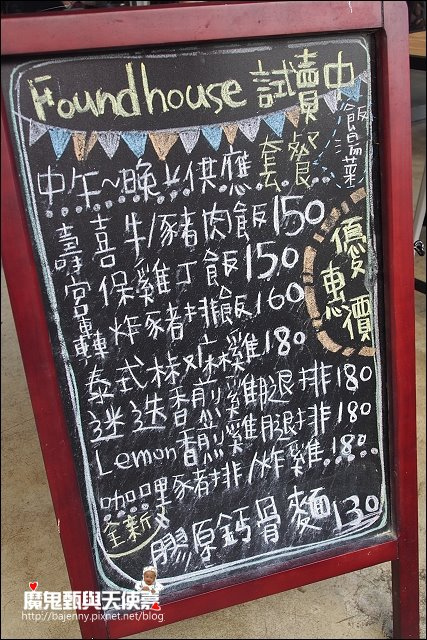 Foundhouse 試賣中
中午~晚上供應套餐 飯湯菜
壽喜牛/豬肉飯150
宮保雞丁飯150
轟炸豬排飯160
優惠價
泰式椒麻雞180
迷迭香煎雞腿排180
Lemon香煎雞腿排180
咖哩豬排/炸雞180
全新
膠原鈣骨麵130
魔鬼甄與天使嘉
http://bajenny.pixnet.net/blog